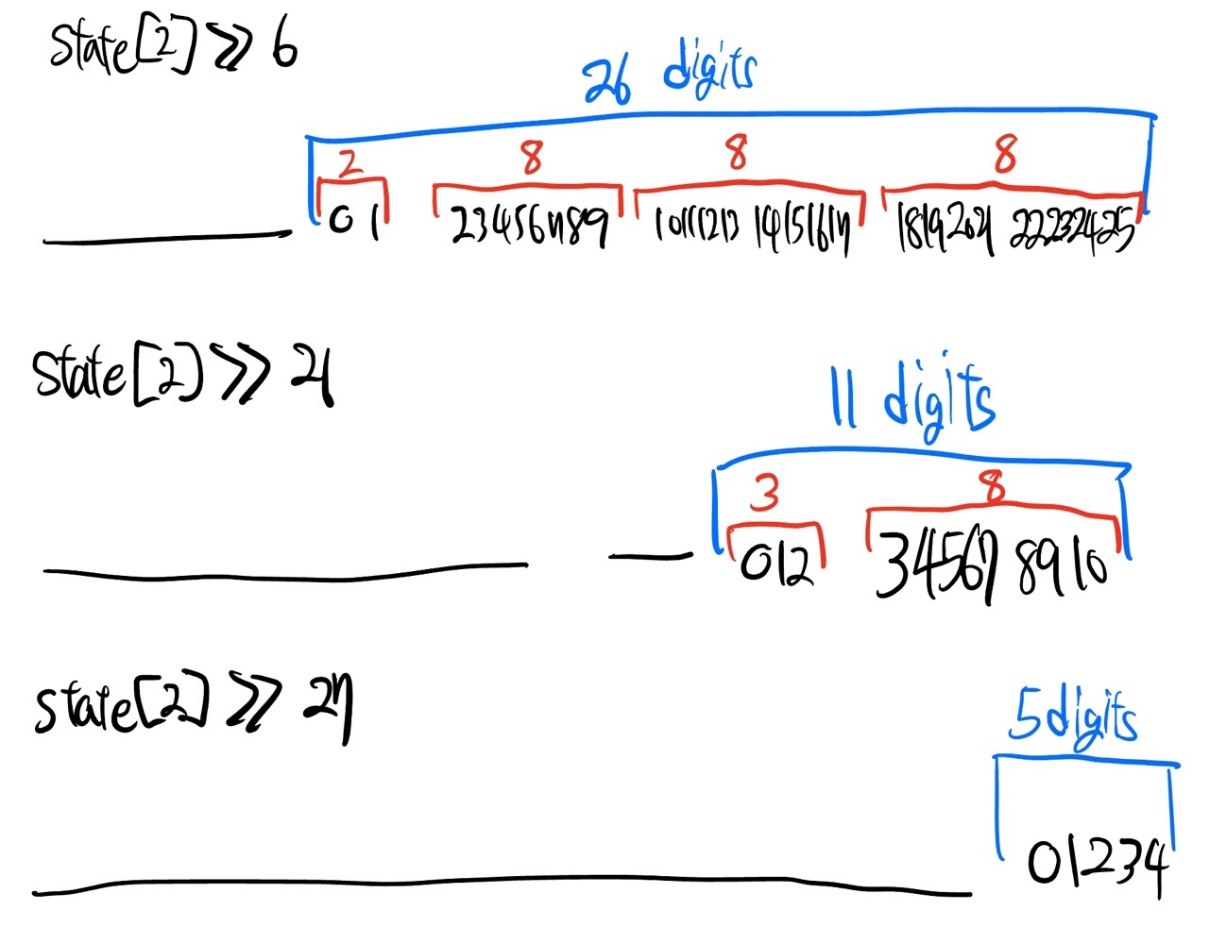 state[2] >> 6
26 digits
2 8 8 8
0 1 23456789 1011121314151617 1819202122232425
state[2] >> 21
11 digits
3 8
012 345678910
state[2] >> 27
5 digits
01234